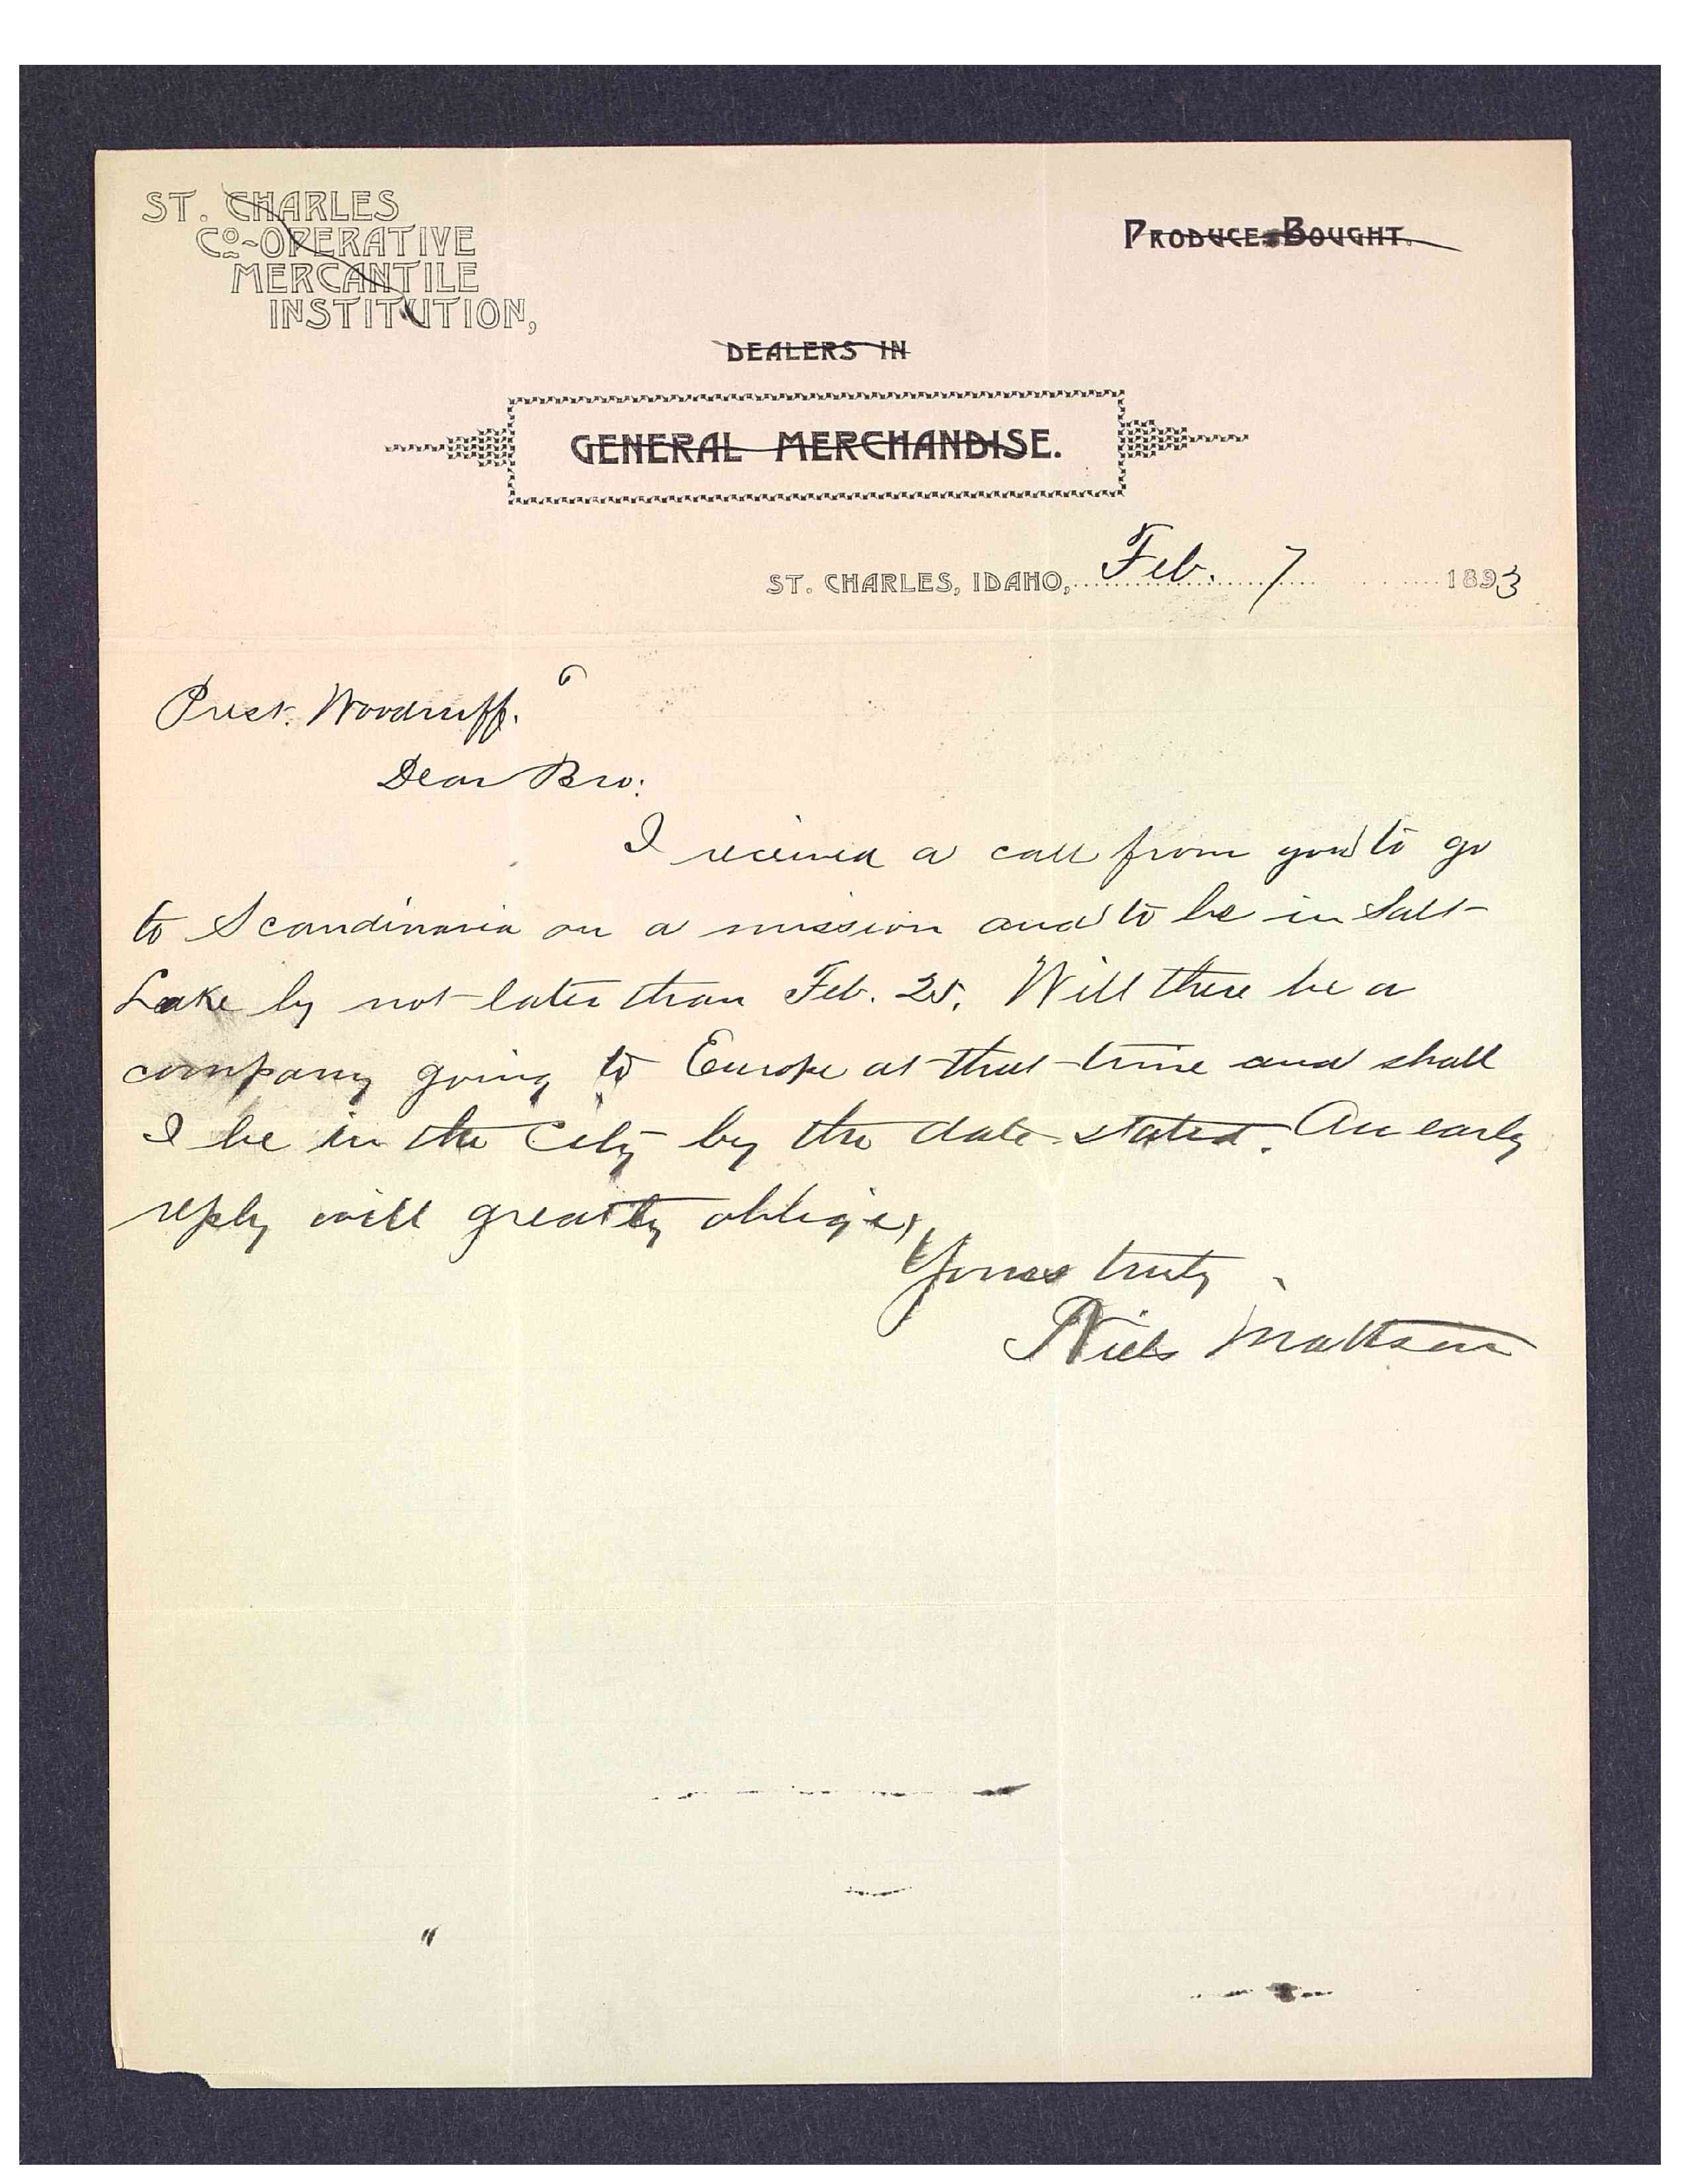 ST. CHARLES
CO-OPERATIVE
MERCANTILE
INSTITUTION,
PRODUCE BOUGHT.
DEALERS IN
GENERAL MERCHANDISE.
ST. CHARLES, IDAHO, Feb. 7 1893
Prest. Woodruff.
Dear Bro:
I received a call from you to go
to Scandinavia on a mission and to be in Salt
Lake by not later than Feb. 25. Will there be a
company going to Europe at that time and shall
I be in the City by the date stated. An early
reply will greatly oblige,
Yours truly
Niels Mattson